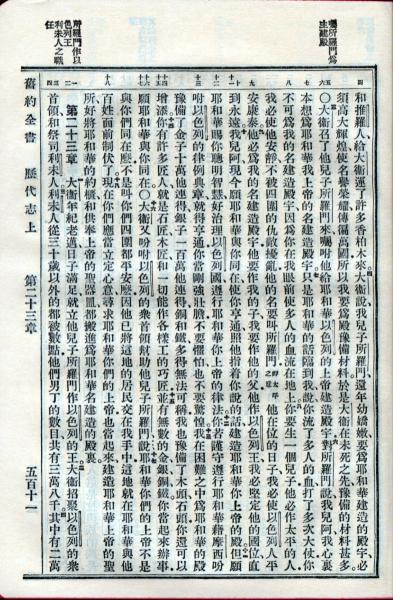 囑所羅門爲
主建殿
所羅門作以
色列王
利未人之職
任
四 和推羅人給大衛運了許多香柏木來大衛說我兒子所羅門還年幼嬌嫩要爲耶和華建造的殿宇必
須高大輝煌使名譽榮耀傳徧萬國所以我要爲殿豫備材料於是大衛在未死之先豫備的材料甚多
○大衛召了他兒子所羅門來囑咐他給耶和華以色列的上帝建造殿宇對所羅門說我兒阿我心裏
本想爲耶和華我上帝的名建造殿宇只是耶和華的話臨到我說你流了多人的血打了多次大仗你
不可爲我的名建造殿宇因爲你在我眼前使多人的血流在地上你要生一個兒子他必作太平的人
我必使他安靜不被四圍的仇敵擾亂他的名要叫所羅門 他在位的日子我必使以色列人平
安康泰他必爲我的名建造殿宇他要作我的子我要作他的父他作以色列王我必堅定他的國位直
到永遠我兒阿現今願耶和華與你同在使你亨通照他指着你說的話建造耶和華你上帝的殿但願
耶和華賜你聰明智慧好治理以色列國遵行耶和華你上帝的律法你若謹守遵行耶和華藉摩西吩
咐以色列的律例典章就得亨通你當剛強壯膽不要懼怕也不要驚惶我在困難之中爲耶和華的殿
豫備了金子十萬他連得銀子一百萬他連得銅和鐵多得無法可稱我也豫備了木頭石頭你還可以
增添你有許多匠人就是石匠木匠和一切能作各樣工的巧匠並有無數的金銀銅鐵你當起來辦事
願耶和華與你同在○大衛又吩咐以色列的衆首領幫助他兒子所羅門說耶和華你們的上帝不是
與你們同在麽不是叫你們四圍都平安麽因他已將這地的居民交在我手中這地就在耶和華與他
百姓面前制伏了現在你們應當立定心意尋求耶和華你們的上帝也當起來建造耶和華上帝的聖
所好將耶和華的約櫃和供奉上帝的聖器皿都搬進爲耶和華名建造的殿裏
第二十三章 大衛年紀老邁日子滿足就立他兒子所羅門作以色列的王大衛招聚以色列的衆
首領和祭司利未人利未人從三十歲以外的都被數點他們男丁的數目共有三萬八千其中有二萬
舊約全書 歷代志上 第二十三章 五百十一